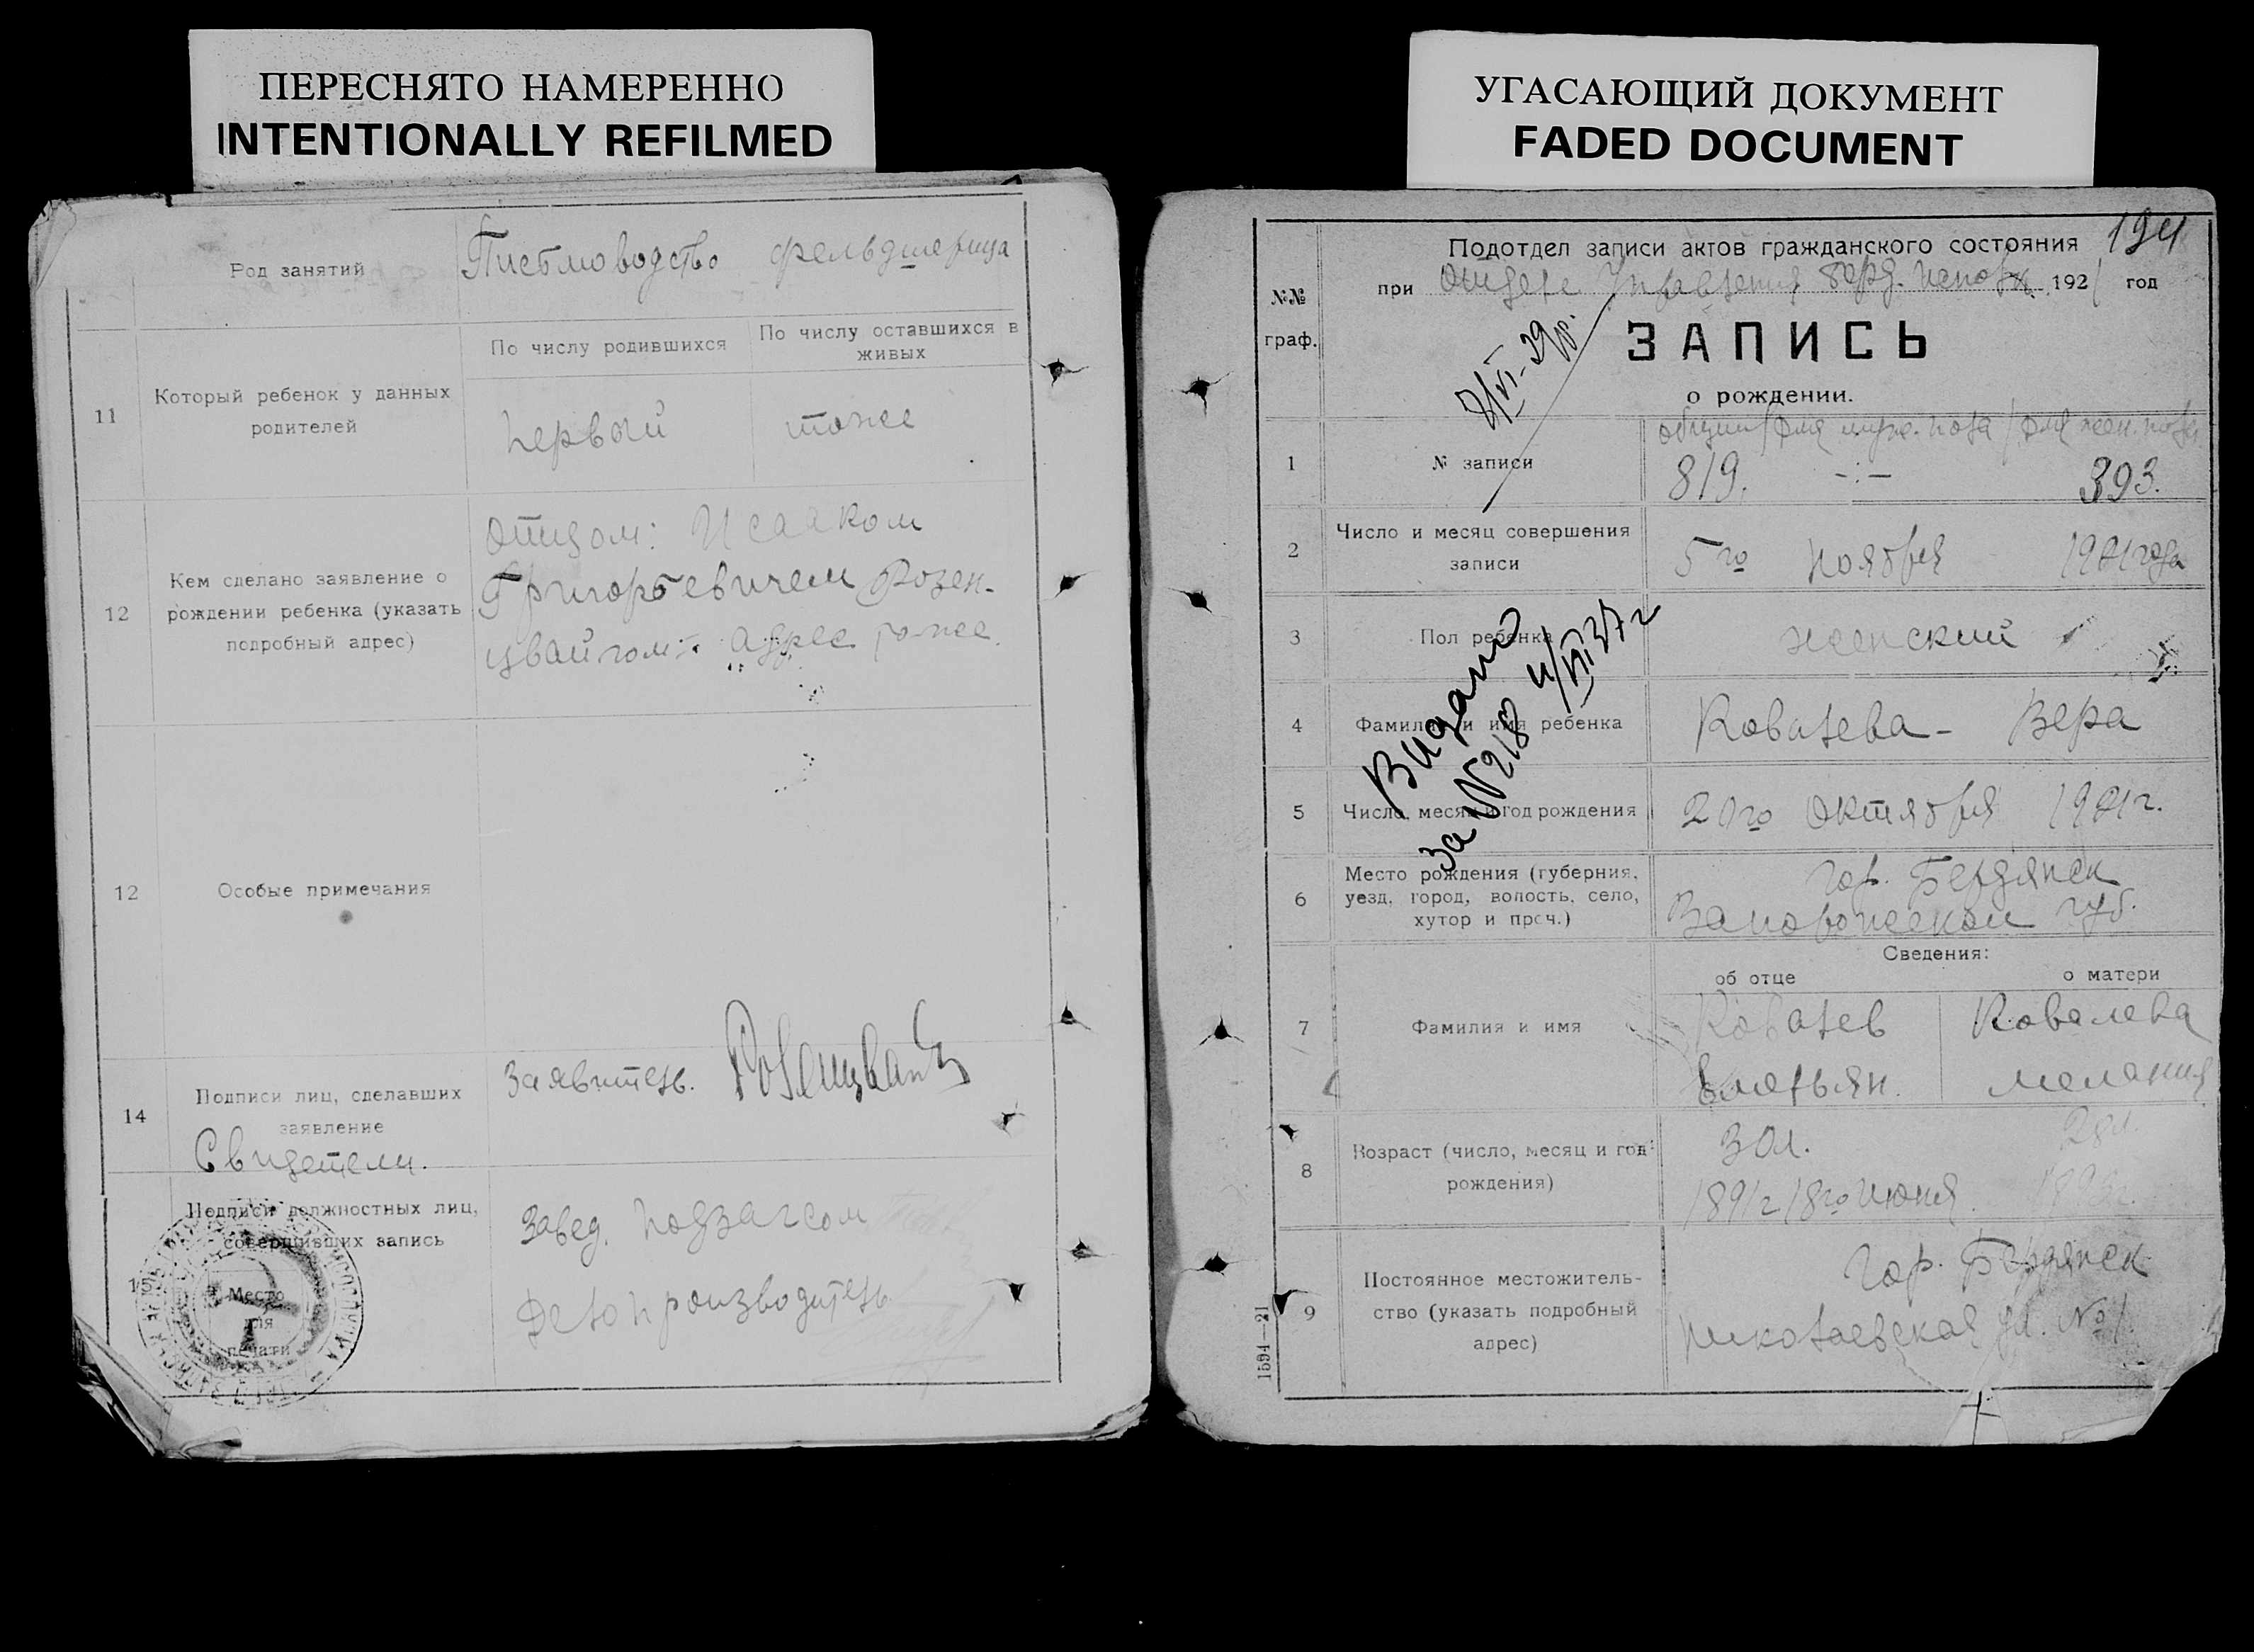 ПЕРЕСНЯТО НАМЕРЕННО
INTENTIONALLY REFILMED
Род занятий
Письмоводство фельдшерица
11
Который ребенок у данных родителей
По числу родившихся
По числу оставшихся в живых
первый
тоже
12
Кем сделано заявление о
рождении ребенка (указать
подробный адрес)
Отцом: Исааком
Григорьевичем Розен-
цвайгом: адрес тоже.
12
Особые примечания
14
Подписи лиц, сделавших
заявление
Свидетели.
Заявитель. Розенцвайг
15
Подписи должностных лиц,
совершивших запись
Место
для
печати
Завед. подзагсом
Делопроизводитель
УГАСАЮЩИЙ ДОКУМЕНТ
FADED DOCUMENT
194
№№
граф.
Подотдел записи актов гражданского состояния
при Отделе Управления Берд. 1921 год
ЗАПИСЬ
о рождении.
общий / для муж. пола / для жен. пола
1
№ записи
819. -:- 393.
2
Число и месяц совершения
записи
5го Ноября 1921 года
3
Пол ребенка
женский
4
Фамилия и имя ребенка
Ковалева - Вера
Видано
за № 218 11/VII 37 г
5
Число, месяц и год рождения
20го Октября 1921 г.
6
Место рождения (губерния,
уезд, город, волость, село,
хутор и проч.)
Гор. Бердянск
Запорожской губ.
Сведения:
об отце
о матери
7
Фамилия и имя
Ковалев
Емельян.
Ковалева
Мелания
8
Возраст (число, месяц и год
рождения)
30 л.
28 л.
1891 г 18го Июня.
9
Постоянное местожитель-
ство (указать подробный
адрес)
Гор. Бердянск
Николаевская ул. № 1.
1594—21